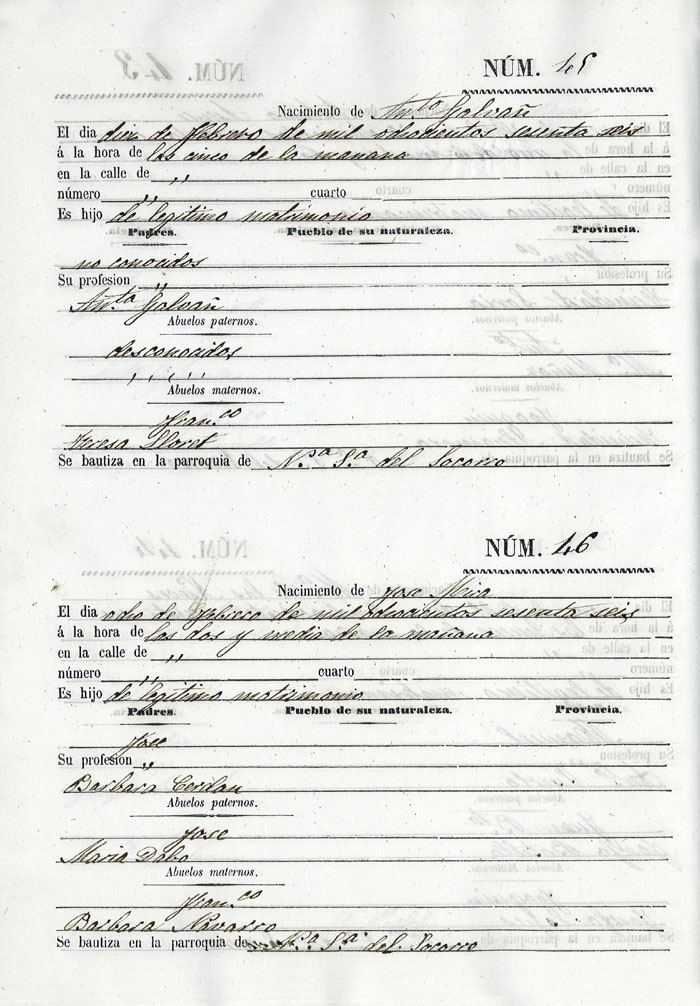 NÚM. 45
Nacimiento de Anto Galvañ
El dia diez de febrero de mil ochocientos sesenta seis
á la hora de las cinco de la mañana
en la calle de ,,
número ,, cuarto
Es hijo de legitimo matrimonio
Padres. Pueblo de su naturaleza. Provincia.
no conocidos
Su profesion ,,
Anta Galvañ
Abuelos paternos.
desconocidos
, , , , ,
Abuelos maternos.
Franco
Teresa Lloret
Se bautiza en la parroquia de Nsa Sa del Socorro
NÚM. 46
Nacimiento de Jose Mira
El dia ocho de febrero de mil ochocientos sesenta seis
á la hora de las dos y media de la mañana
en la calle de ,,
número ,, cuarto
Es hijo de legitimo matrimonio
Padres. Pueblo de su naturaleza. Provincia.
Jose
Su profesion ,,
Barbara Cerdan
Abuelos paternos.
Jose
Maria Dabo
Abuelos maternos.
Franco
Barbara Navarro
Se bautiza en la parroquia de Na Sa del Socorro